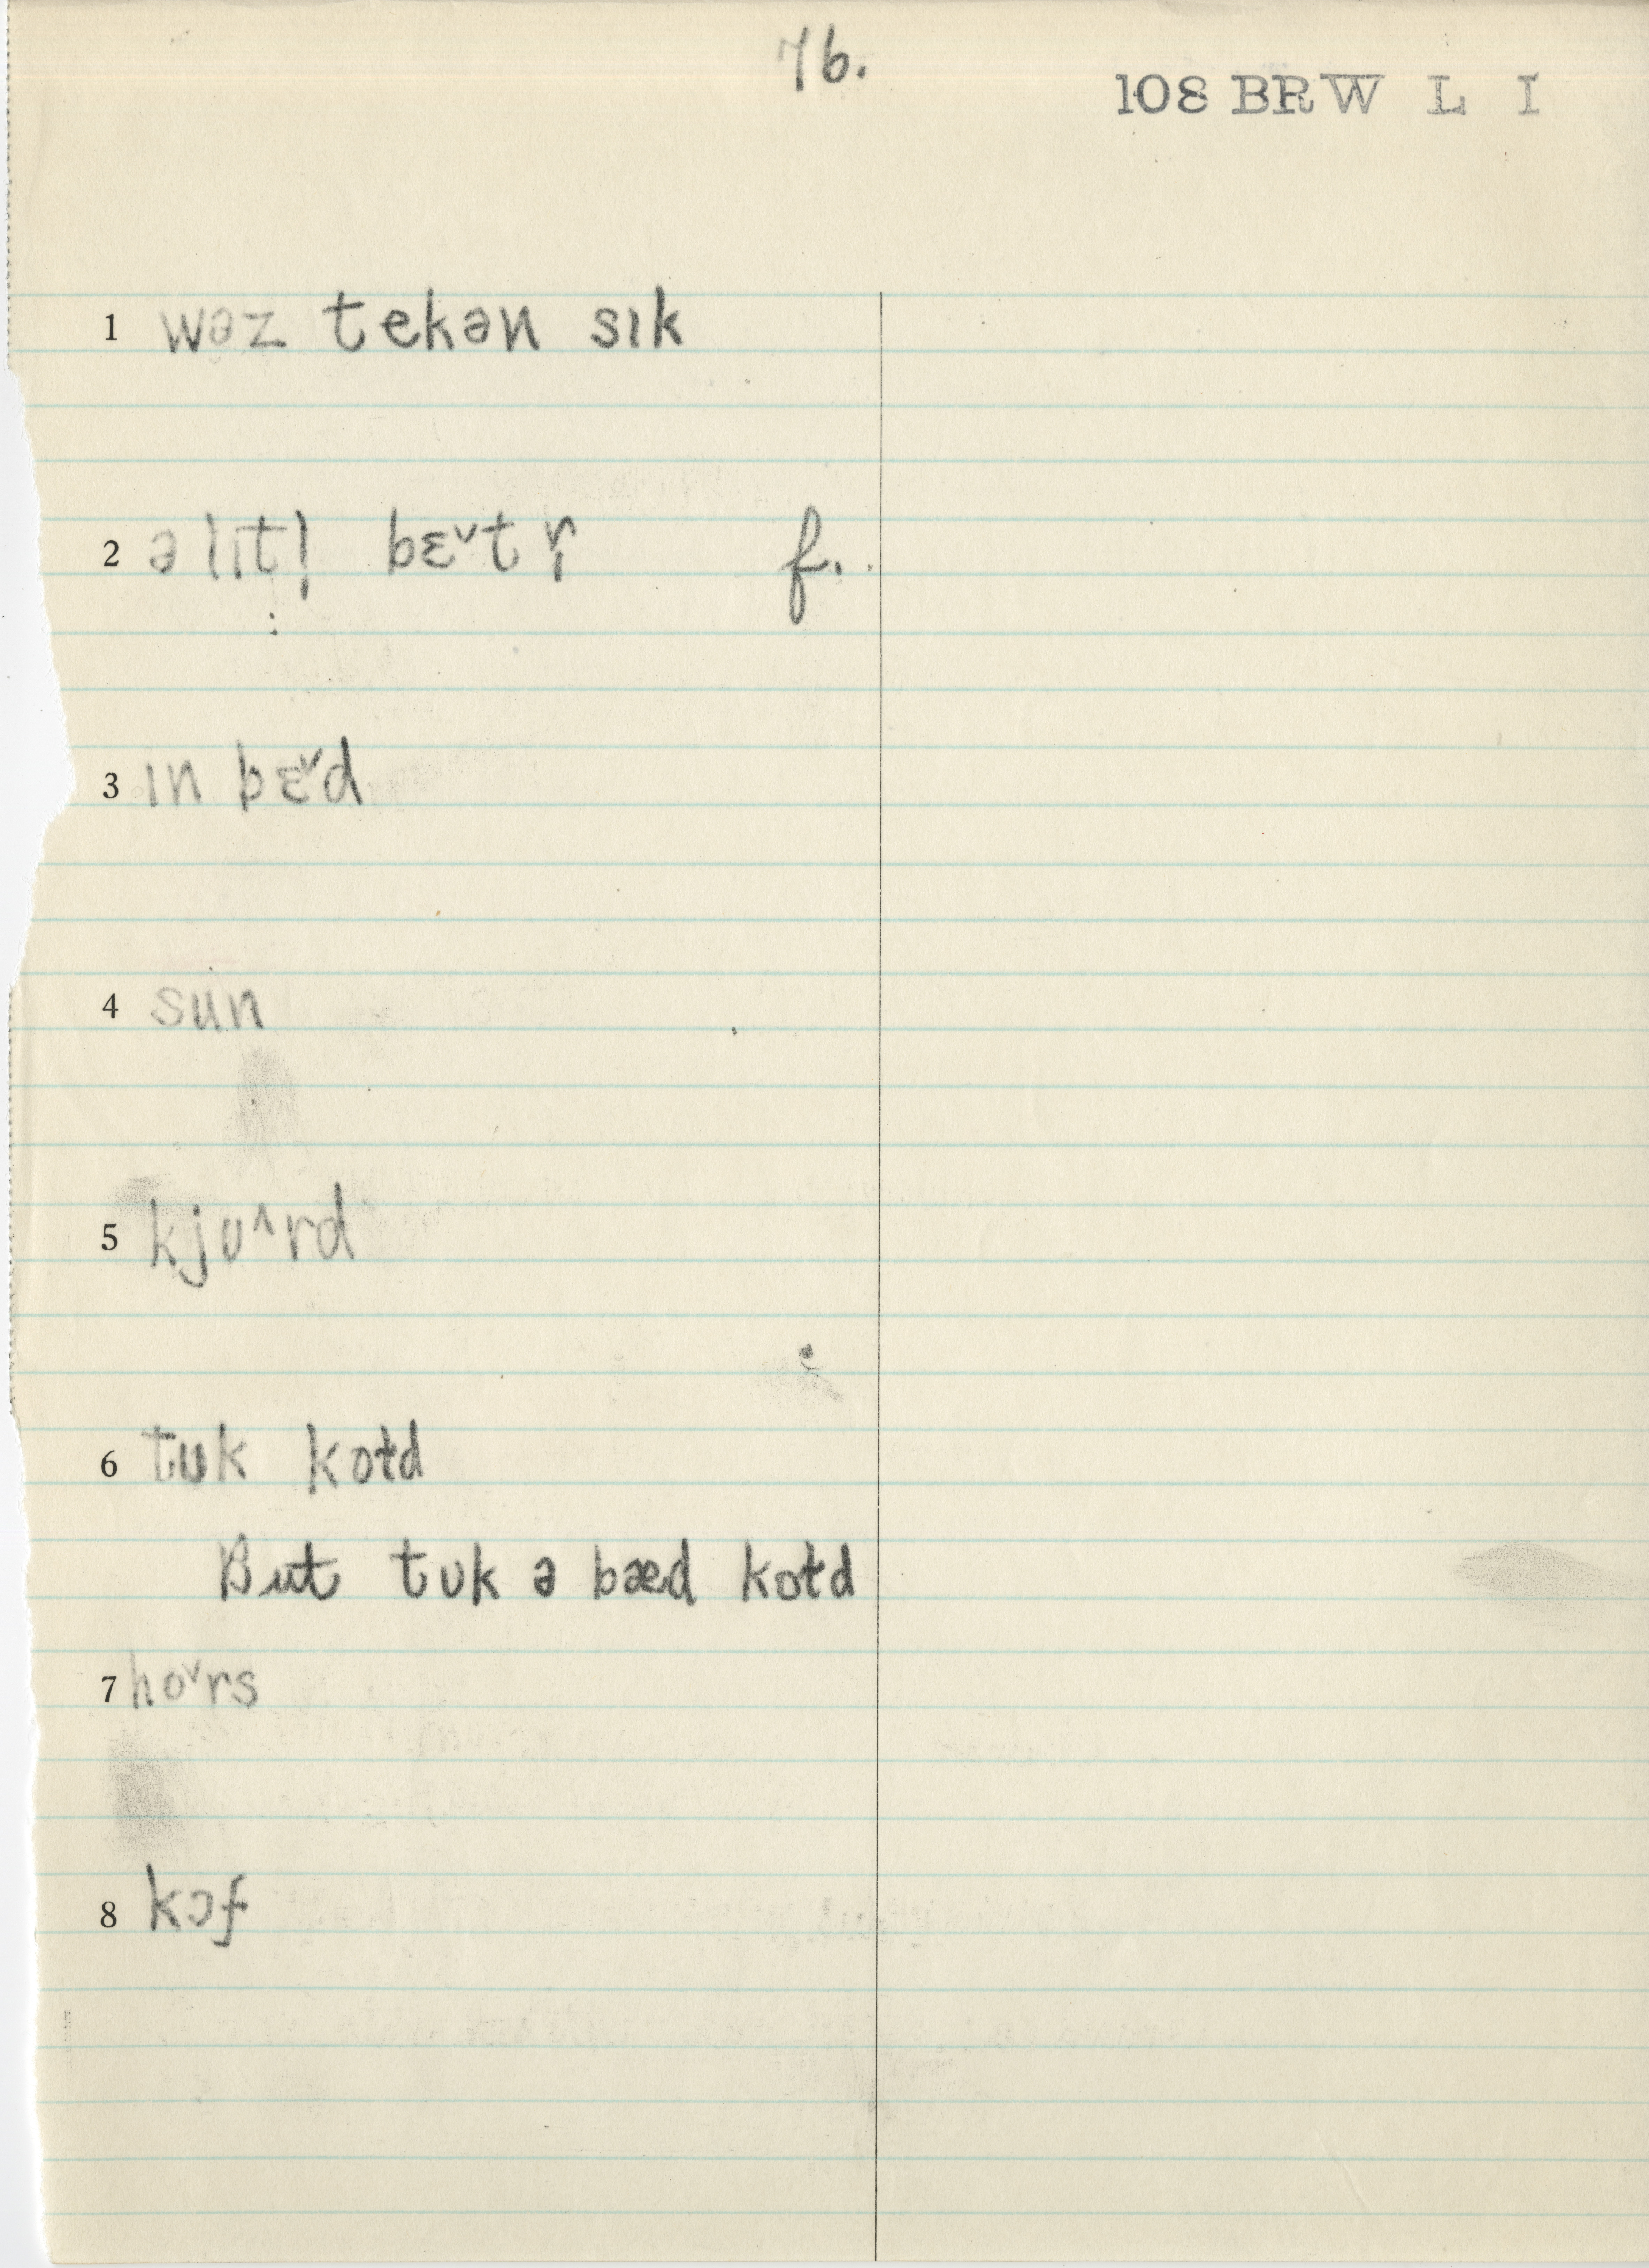 76.
108 BRW L I
1 wəz tekən sɪk
2 ə lɪtl̩ bɛ˅t r̩ f.
3 ɪn bɛ˅d
4 sun
5 kjʊ˄rd
6 tʊk koɫd
But tʊk ə bæd koɫd
7 ho˅rs
8 kɔf